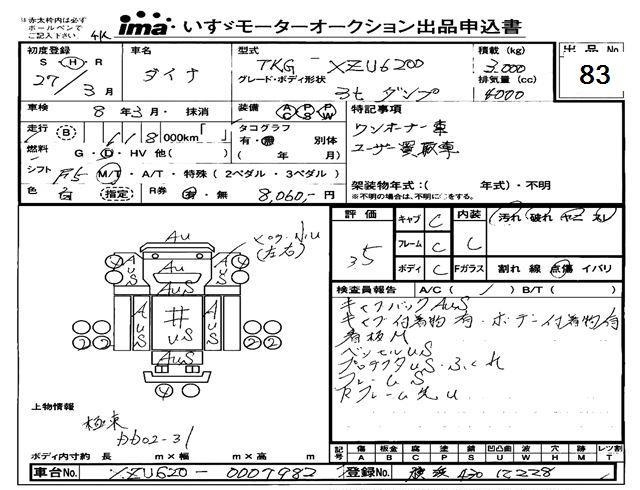 ※赤太枠内は必ず
ボールペンで
ご記入下さい。
4K
ima いすゞモーターオークション出品申込書
初度登録
S・H・R
27/3月
車名
ダイナ
型式
TKG-XZU620D
グレード・ボディ形状
3t ダンプ
積載(kg)
3,000
排気量(cc)
4000
出品No
83
車検
8年3月・抹消
装備
AC PS PW
走行
B
118,000km
タコグラフ
有・無 別体
(年 月)
燃料
G・D・HV 他( )
シフト
F5 M/T・A/T・特殊(2ペダル・3ペダル)
色
白 指定
R券
有・無 8,060,-円
特記事項
ワンオーナー車
ユーザー買取車
架装物年式:( 年式)・不明
※不明の場合は、不明に○をする。
評価
3.5
キャブ C
フレーム C
ボディ C
内装 C
汚れ 破れ ヤニ スレ
Fガラス
割れ 線 点傷 イバリ
検査員報告 A/C( / ) B/T( )
キャブバックAuS
キャブ付着物有・ボデー付着物有
看板M
ベッセルuS
プロテクタuS・ふくれ
フレームS
Rフレーム先u
Au
AuS
AuS
AuS
AuS
井
uS
AuS
AuS
AuS
4
4
2 2
2 2
4
(左右)
上物情報
極東
DD02-31
ボディ内寸約 長 m×幅 m×高 m
記号
傷 A
板金 B
腐 C
塗 P
錆 S
凹凸曲 U
波 W
穴 H
跡 M
レツ割 T
車台No.
XZU620-0007982
登録No.
横浜 430 に 228